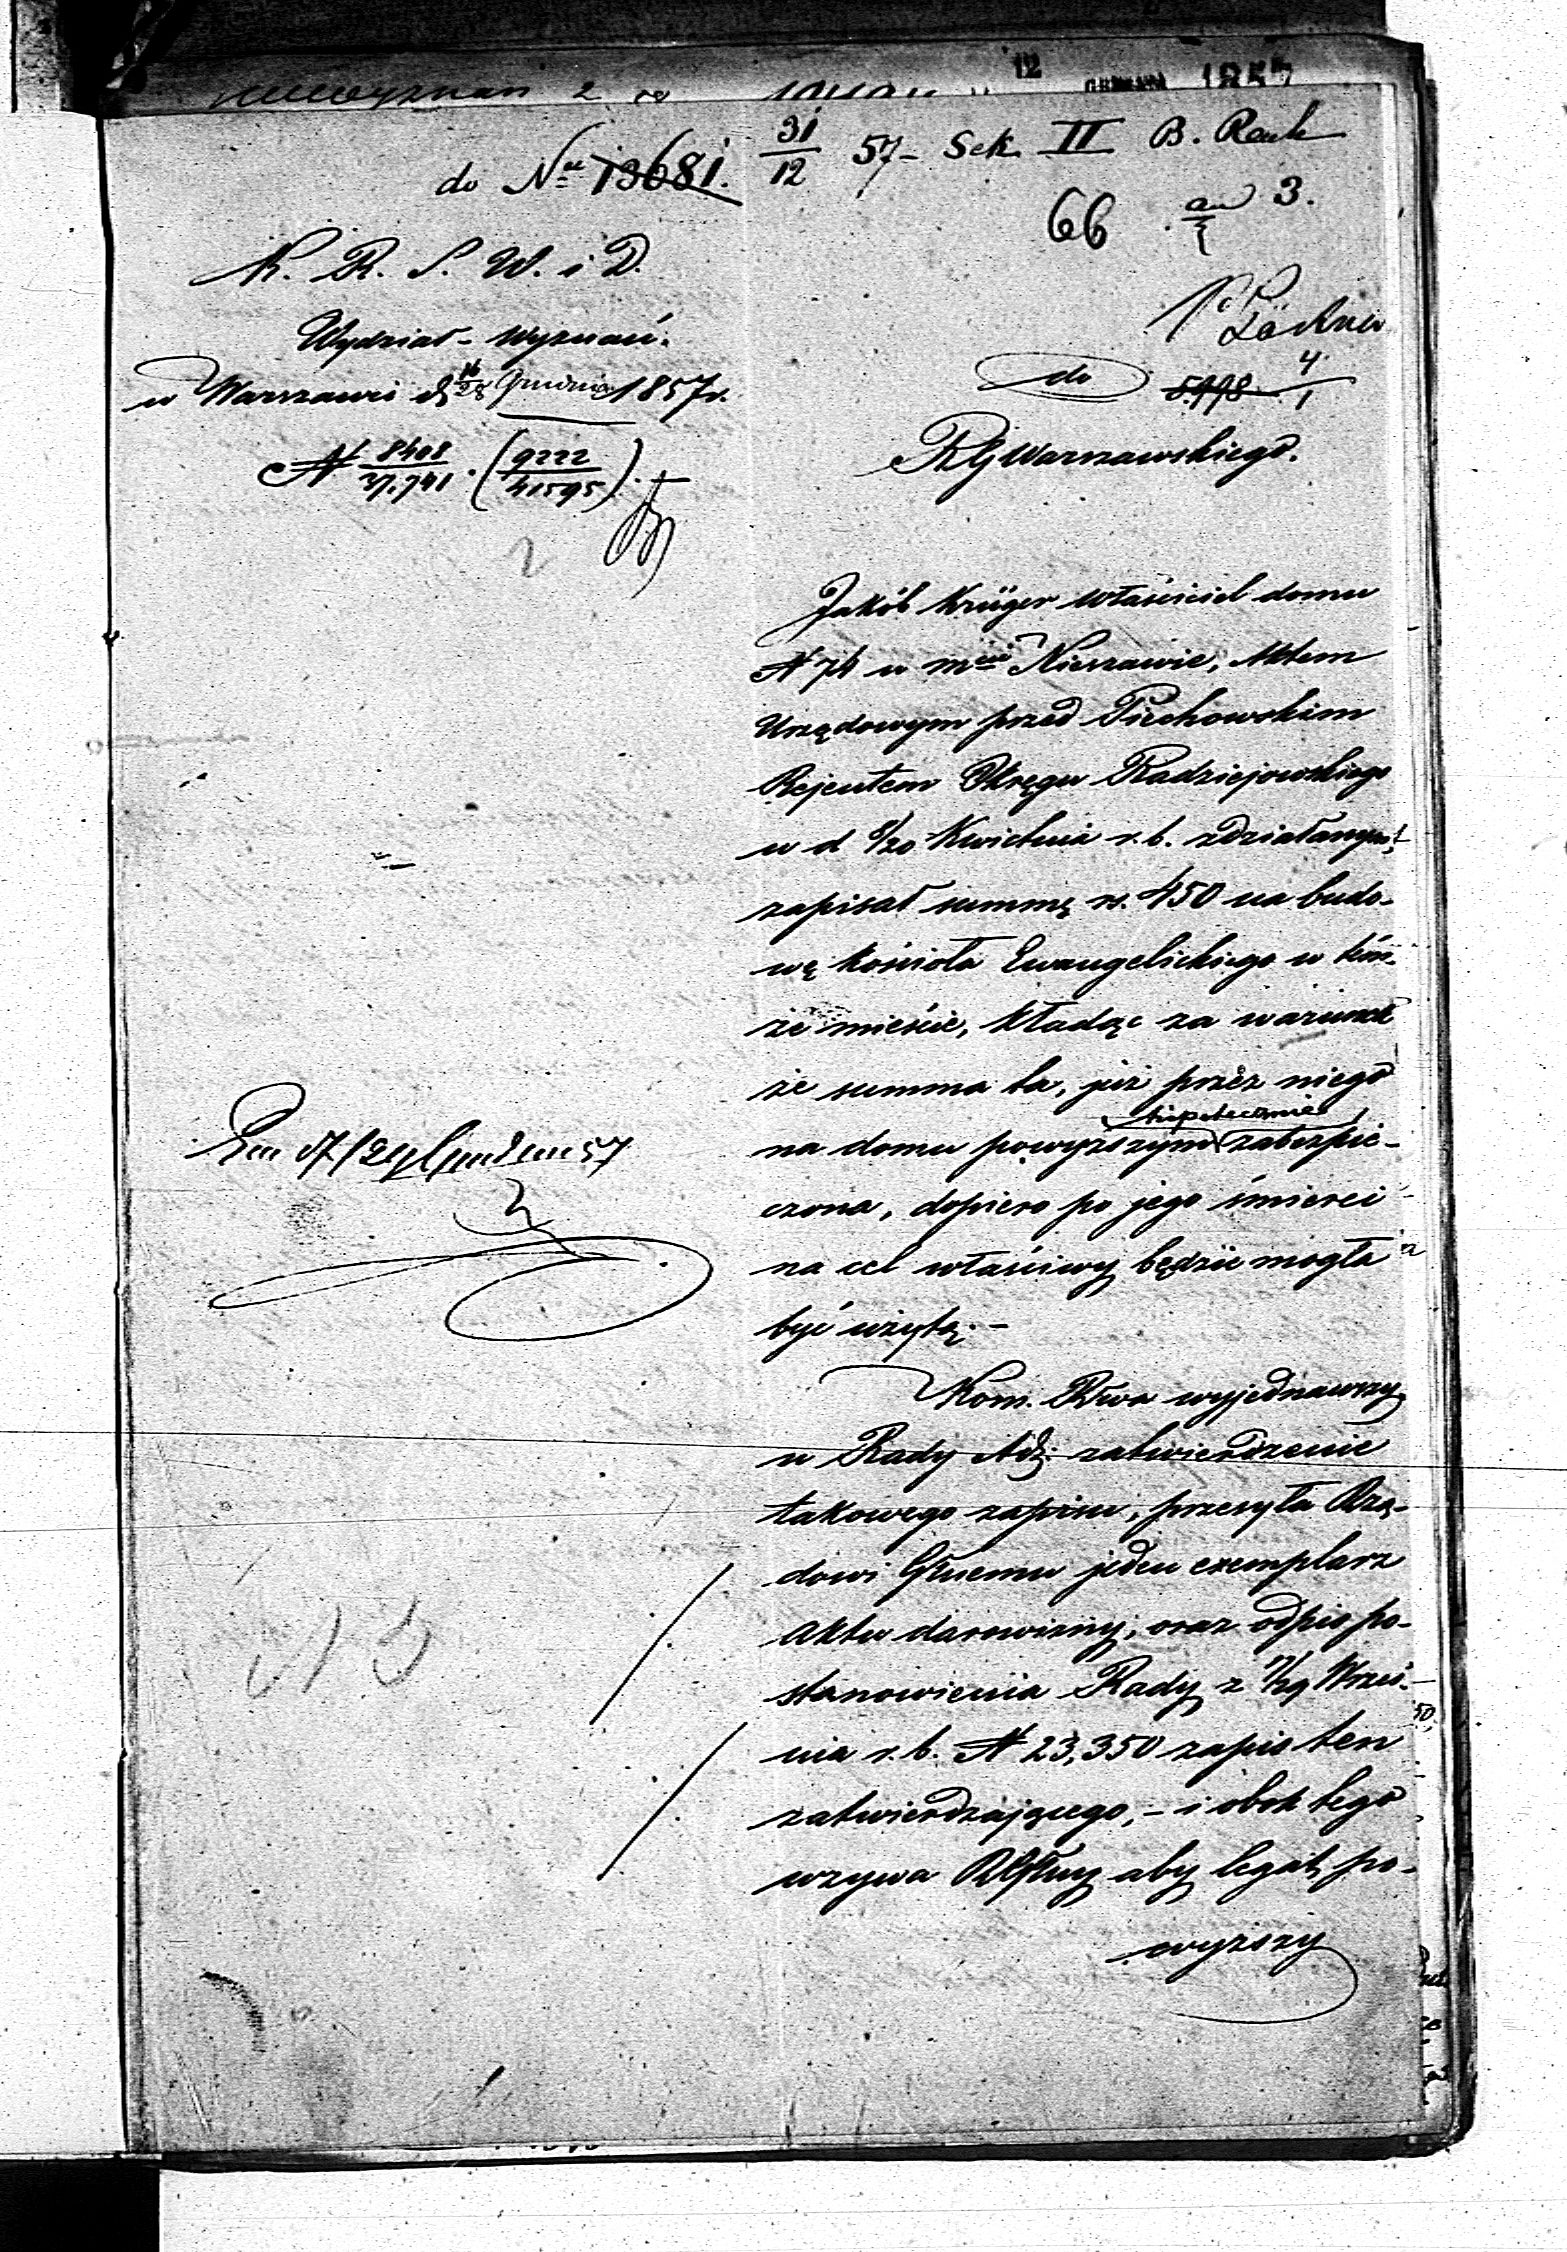 do N 13681. 31/12 57 - Sek II B. Rach
66 3.
K. R. S. W. i D.
Wydział - Wyznań.
w Warszawie d 16/28 Grudnia 1857 r.
N 8408/37.741 . (9222/41595).
do
5998 4/1
RG Warszawskiego.
Jakób Krüger właściciel domu
N 74 w mcie Nieszawie, Aktem
Urzędowym przed Piechowskim
Rejentem Okręgu Radziejowskiego
w d 8/20 Kwietnia r. b. zdziałanym,
zapisał summę rs. 450 na budo-
wę kościoła Ewangelickiego w tém-
że mieście, kładąc za warunek
że summa ta, już przez niego
hipotecznie
na domu powyższym zabezpie-
czona, dopiero po jego śmierci
na cel właściwy będzie mogła
być użytą. -
Kom. Rwa wyjednawszy
u Rady Adj: zatwierdzenie
takowego zapisu, przesyła Rzą-
dowi Głnemu jeden exemplarz
aktu darowizny, oraz odpis po-
stanowienia Rady z 17/29 Wrześ-
nia r. b. N 23,350 zapis ten
zatwierdzającego, - i obok tego
wzywa RGłny aby legat po-
wyższy